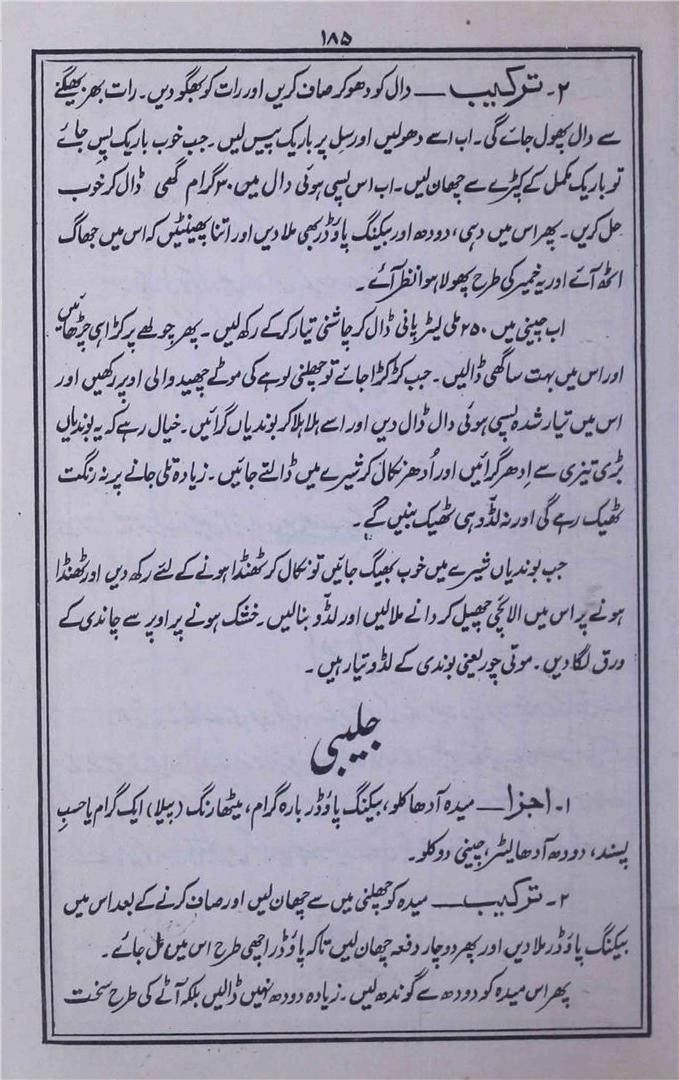 ۱۸۵
۲۔ ترکیب ــــ دال کو دھو کر صاف کریں اور رات کو بھگو دیں۔ رات بھر بھیگنے
سے دال پھول جائے گی۔ اب اسے دھولیں اور سِل پر باریک پیس لیں۔ جب خوب باریک پِس جائے
تو باریک ململ کے کپڑے سے چھان لیں۔ اب اس پسی ہوئی دال میں ۳۰ گرام گھی ڈال کر خوب
حل کریں۔ پھر اس میں دہی، دودھ اور بیکنگ پاؤڈر بھی ملا دیں اور اتنا پھینٹیں کہ اس میں جھاگ
اٹھ آئے اور یہ خمیر کی طرح پھولا ہوا نظر آئے۔
اب چینی میں ۲۵۰ ملی لیٹر پانی ڈال کر چاشنی تیار کرکے رکھ لیں۔ پھر چولھے پر کڑاہی چڑھائیں
اور اس میں بہت سا گھی ڈالیں۔ جب کڑکڑا جائے تو چھلنی لوہے کی موٹے چھید والی اوپر رکھیں اور
اس میں تیار شدہ پسی ہوئی دال ڈال دیں اور اسے ہلا ہلا کر بوندیاں گرائیں۔ خیال رہے کہ یہ بوندیاں
بڑی تیزی سے اِدھر گرائیں اور اُدھر نکال کر شیرے میں ڈالتے جائیں۔ زیادہ تلی جانے پر نہ رنگت
ٹھیک رہے گی اور نہ لڈو ہی ٹھیک بنیں گے۔
جب بوندیاں شیرے میں خوب بھیگ جائیں تو نکال کر ٹھنڈا ہونے کے لئے رکھ دیں اور ٹھنڈا
ہونے پر اس میں الائچی چھیل کر دانے ملالیں اور لڈو بنالیں۔ خشک ہونے پر اوپر سے چاندی کے
ورق لگا دیں۔ موتی چور یعنی بوندی کے لڈو تیار ہیں۔
جلیبی
۱۔ اجزا ــــ میدہ آدھا کلو، بیکنگ پاؤڈر بارہ گرام، میٹھا رنگ (پیلا) ایک گرام یا حسبِ
پسند، دودھ آدھا لیٹر، چینی دو کلو۔
۲۔ ترکیب ــــ میدہ کو چھلنی میں سے چھان لیں اور صاف کرنے کے بعد اس میں
بیکنگ پاؤڈر ملا دیں اور پھر دو چار دفعہ چھان لیں تاکہ پاؤڈر اچھی طرح اس میں مل جائے۔
پھر اس میدہ کو دودھ سے گوندھ لیں۔ زیادہ دودھ نہیں ڈالیں بلکہ آٹے کی طرح سخت